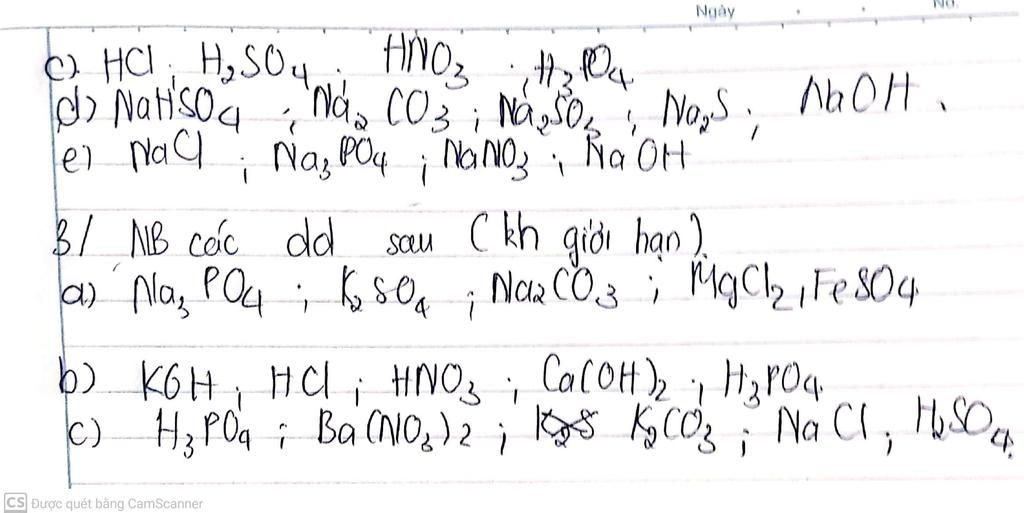 Ngày
No.
c) HCl ; H₂SO₄ ; HNO₃ ; H₃PO₄
d) NaHSO₄ ; Na₂CO₃ ; Na₂SO₃ ; Na₂S ; NaOH .
e) NaCl ; Na₃PO₄ ; NaNO₃ ; NaOH
3/ NB các dd sau (kh giới hạn).
a) Na₃PO₄ ; K₂SO₄ ; Na₂CO₃ ; MgCl₂ , FeSO₄
b) KOH ; HCl ; HNO₃ ; Ca(OH)₂ ; H₃PO₄
c) H₃PO₄ ; Ba(NO₃)₂ ; K₂CO₃ ; NaCl ; H₂SO₄
CS Được quét bằng CamScanner